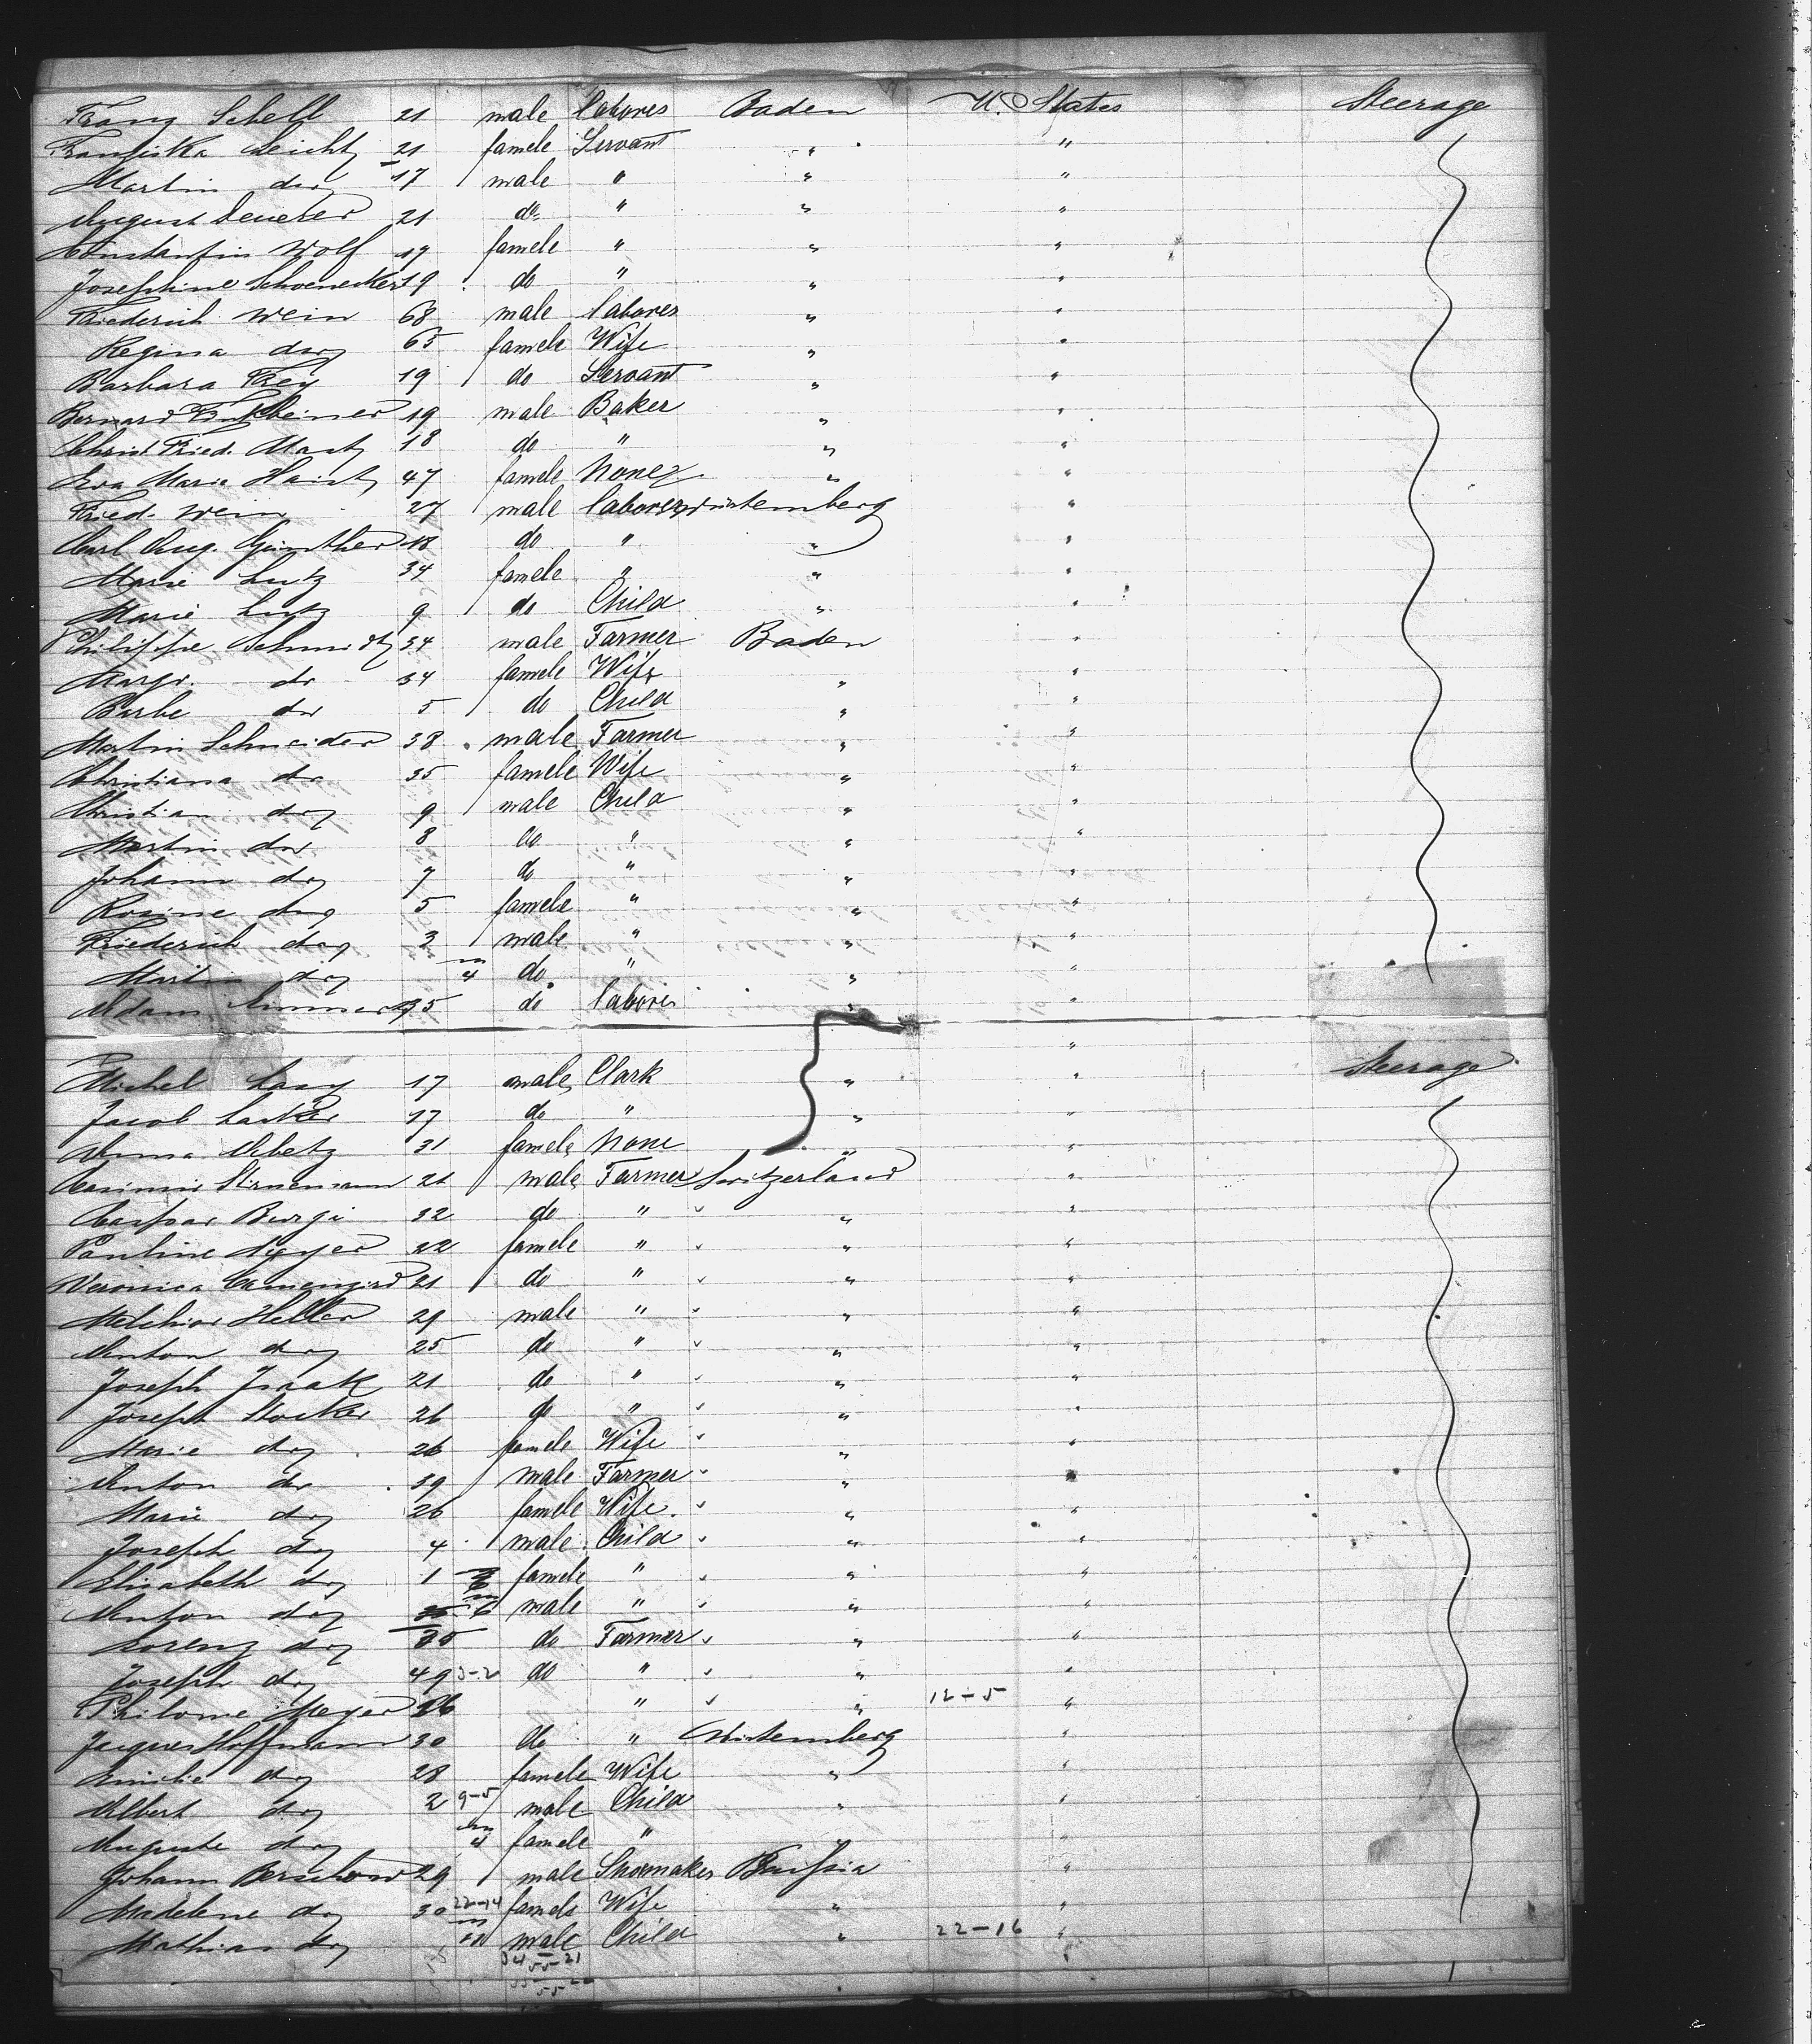 Franz Schell 21 male labores Baden U. States Steerage
Franziska Leicht 21 famele Servant " "
Martin do 17 male " " "
August 21 do " " "
Constantin Wolf 19 famele " " "
Josephine Schoenecker 19 do " " "
Friederich Wein 68 male labores " "
Regina do 65 famele Wife " "
Barbara Frey 19 do Servant " "
Bernard Finkbeiner 19 male Baker " "
Christ Fried. 18 do " " "
Eva Marie Haist 47 famele None " "
Fried. Wein 27 male laborer Würtemberg "
Carl Aug. Günther 18 do " " "
Marie Lutz 34 famele " " "
Marie Lutz 9 do Child " "
Philippe Schmidt 34 male Farmer Baden "
Margr. do 34 famele Wife " "
Barbe do 5 do Child " "
Martin Schneider 38 male Farmer " "
Christiana do 35 famele Wife " "
Christian do 9 male Child " "
Martin do 8 do " " "
Johann do 7 do " " "
Rosine do 5 famele " " "
Friederich do 3 male " " "
Martin do m 4 do " " "
Adam 35 do labores " "
"
Michel 17 male Clark " " Steerage
Jacob 17 do " " "
Anna 31 famele None " "
Casimir Stirnemann 21 male Farmer Switzerland "
Caspar Burgi 32 do " " "
Pauline 22 famele " " "
Veronica Camenzind 21 do " " "
Melchior Heller 29 male " " "
Anton do 25 do " " "
Joseph Isaak 21 do " " "
Joseph Stocker 26 do " " "
Marie do 26 famele Wife " "
Anton do 39 male Farmer " "
Marie do 26 famele Wife " "
Joseph do 4 male Child " "
Elisabeth do 1 famele " " "
Anton do m 6 male " " "
Lorenz do 35 do Farmer " "
Joseph do 49 3-2 do " " "
Philome Meyer 26 " " 12-5 "
Jacques Hoffmann 30 do " Wirtemberg "
Emilie do 28 famele Wife " "
Albert do 2 9-5 male Child " "
Auguste do m 4 famele " " "
Johann 29 male Shoemaker Prussia "
Madelene do 30 22-14 famele Wife " "
Mathias do m male Child " 22-16 "